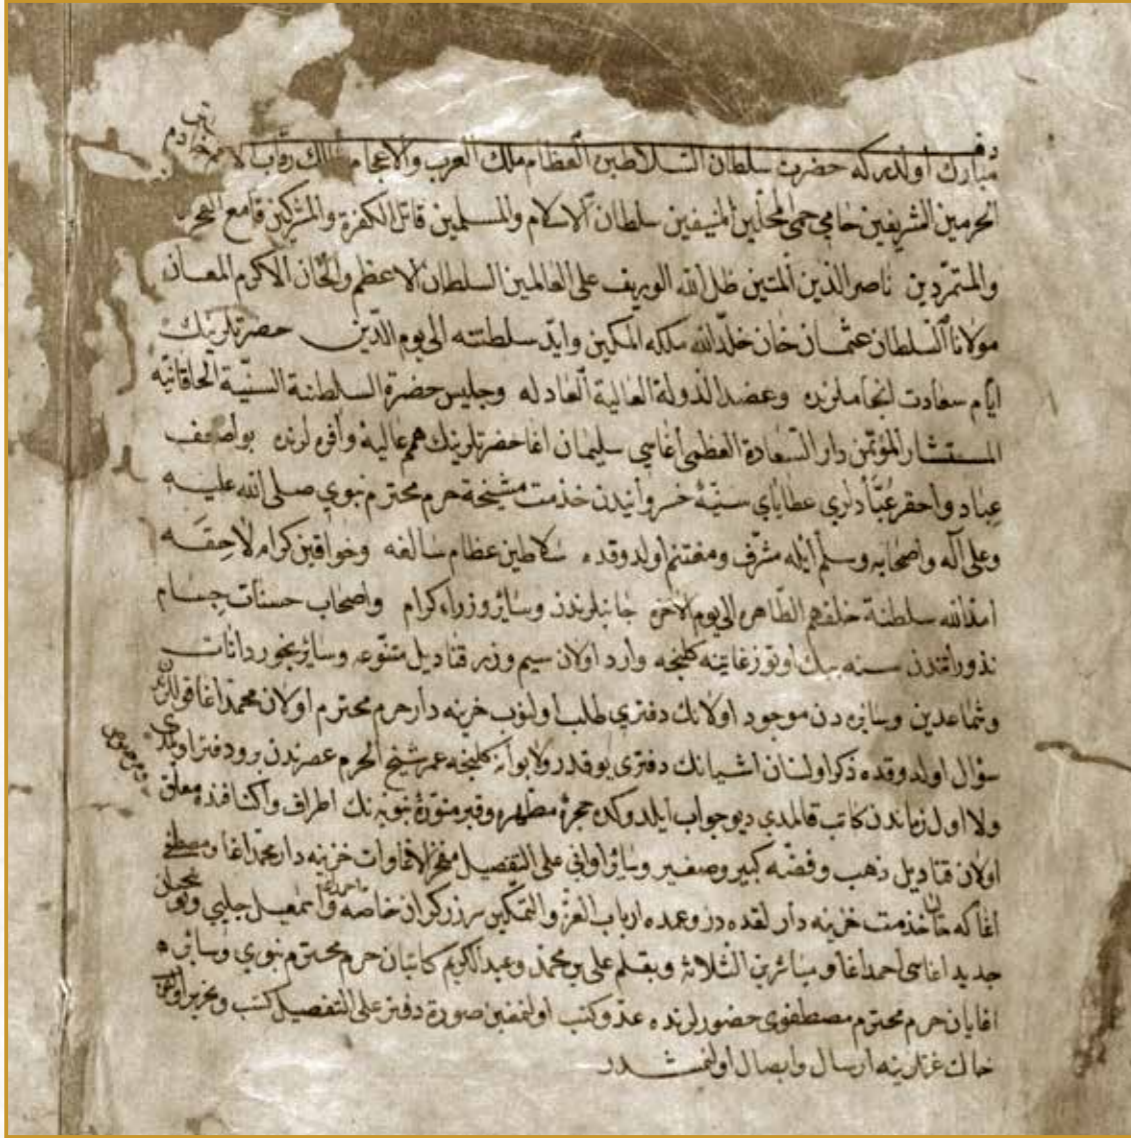 دفتر
مبارك اولدر كه حضرت سلطان السلاطين العظام ملك العرب والاعجام مالك رقاب الامم خادم
الحرمين الشريفين حامي حمى المحلين المنيفين سلطان الاسلام والمسلمين قاتل الكفرة والمشركين قامع
والمتمردين ناصر الدين المتين ظل الله الوريف على العالمين السلطان الاعظم والخان الاكرم المعان
مولانا السلطان عثمان خان خلد الله ملكه المكين وايد سلطنته الى يوم الدين حضرتلرينك
ايام سعادت انجاملرنده وعضد الدولة العالية العادله وجليس حضرة السلطنة السنية الخاقانيه
المستشار المؤتمن دار السعادة العظمى أغاسي سليمان اغا حضرتلرينك همم عالية وافره لرنده بو اضعف
عباد واحقر عطاياي سنية خسروانيدن خدمت مشيخة حرم محترم نبوي صلى الله عليه
وعلى آله واصحابه وسلم ايله مشرف ومغتنم اولدوقده سلاطين عظام سالفه وخواقين كرام لاحقه
امد الله سلطنة خلفهم الطاهره الى يوم الآخره جانبلرندن وسائر وزراء كرام واصحاب حسنات جسام
نذوراتندن سنه بيك اوتوز غايتنه كلنجه وارد اولان سيم وزر قناديل متنوعه وسائر بخوردانات
وشماعدين وسايره دن موجود اولانك دفتري طلب اولنوب خزينه دار حرم محترم اولان محمد اغا قوللرندن
سؤال اولدوقده ذكر اولنان اشيانك دفترى يوقدر ولا بو آنه كلنجه عمر شيخ الحرم عصرندن برو دفتر اولمدى
ولا اول زماندن كاتب قالمدى ديو جواب ايلدوكده حجرهٔ مطهره وقبر منورهٔ نبويه نك اطراف واكنافنده معلق
اولان قناديل ذهب وفضه كبير وصغير وسائر اوانى على التفصيل فخر الاغاوات خزينه دار محمد اغا ومصطفى
اغا كه خدمت خزينه دار لقده در وعمده ارباب العز والتمكين سر زركران خاصه احمد واسمعيل جلبي
جديد اغاسى احمد اغا ومباشرين الثلاثه وبقلم على بن محمد وعبد الكريم كاتبان حرم محترم نبوي وسائره
اغايان حرم محترم مصطفوى حضورلرنده عد وكتب اولنمغين صورة دفتر على التفصيل كتب وتحرير اولنوب
خاك ارسال وايصال اولنمشدر